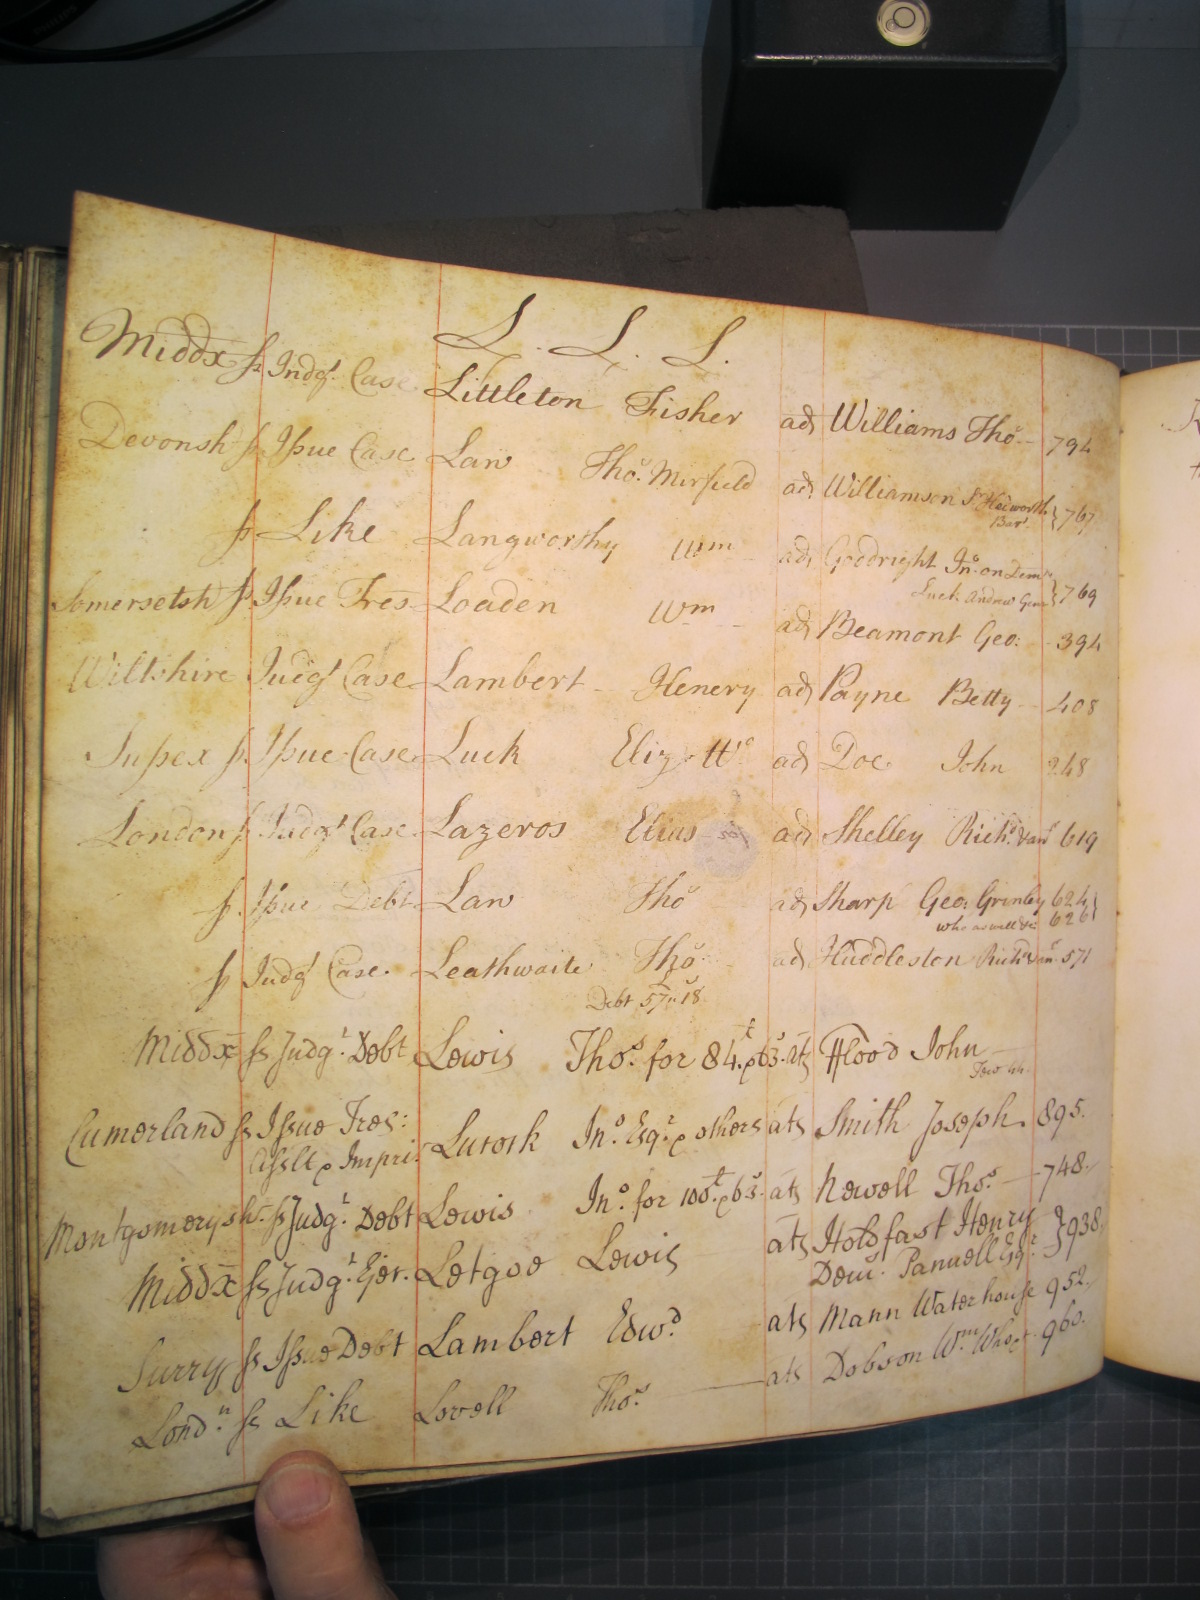 L. L. L.
Middx ss Judgt. Case Littleton Fisher ads Williams Tho.s 794
Devonsh ss Issue Case Law Tho.s Mirfield ads Williamson Sr Hedworth
Bart. } 767
ss Like Langworthy Wm ads Goodright Jno. on Dem
Luck Andrew Gent } 769
Somersetsh ss Issue Tres Loaden Wm ads Beamont Geo: 394
Wiltshire Judgt Case Lambert Henery ads Payne Betty 408
Sussex ss Issue Case Luck Eliz. Wo. ads Doe John 248
London ss Judgt Case Lazeros Elius ads Shelley Richd. & anr 619
ss Issue Debt Law Tho.s ads Sharp Geo: Grinley 624
who as well &c 626 }
ss Judgt Case Leathwaite Tho.s ads Huddleston Richd & anr 571
Debt 57 18
Middx ss Judgt. Debt Lewis Tho.s for 84.£ & 63s. ats Flood John
Cumerland ss Issue Tres:
Asslt & Impri: Lutork Jno. Esqr. & others ats Smith Joseph 895.
Montgomerysh. ss Judgt. Debt Lewis Jno. for 100.£ & 63s. ats Newell Tho.s 748
Middx ss Judgt. Ejet. Letgoe Lewis ats Holdfast Henry
Dem. Panuell Esqr. } 938
Surry ss Issue Debt Lambert Edwd. ats Mann Waterhouse 952
Londn. ss Like Lovell Tho.s ats Dobson Wm. 960.